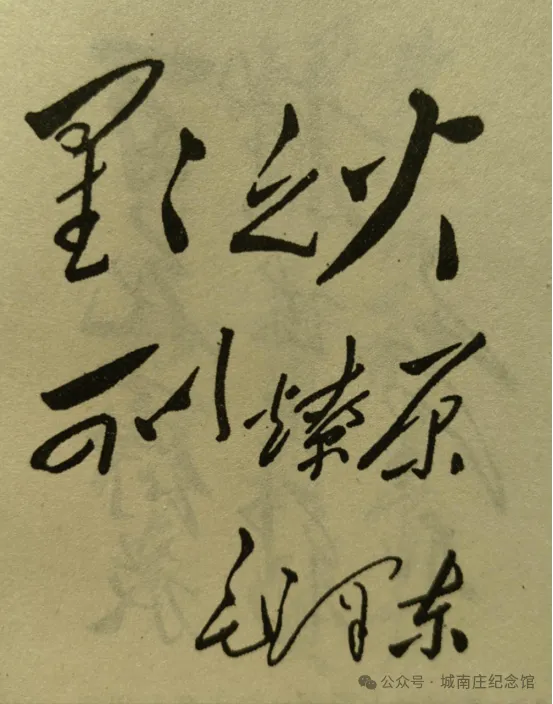 星々之火
可以燎原
毛泽东
公众号·城南庄纪念馆